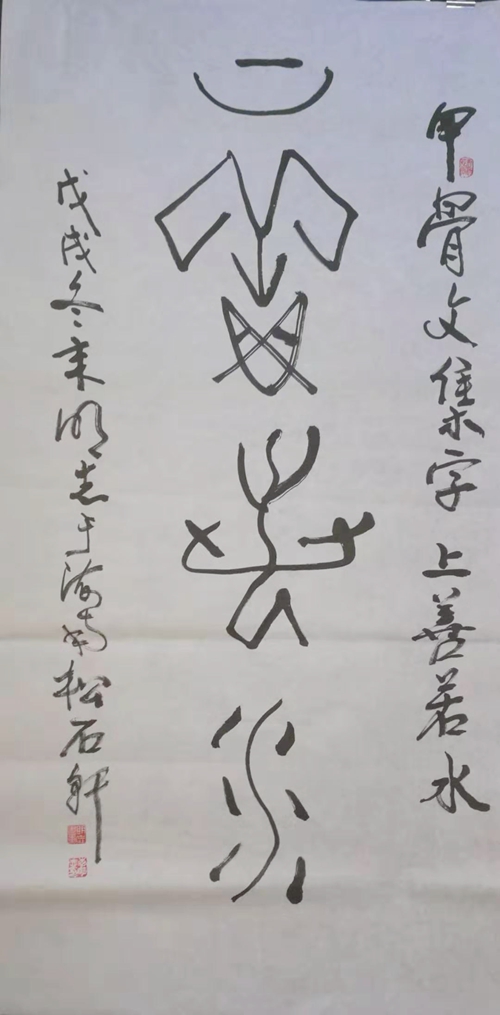 甲骨文集字 上善若水
上善若水
戊戌冬末明志于渝南松石轩